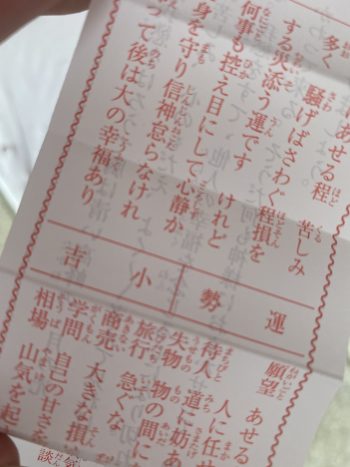 にあせる程 苦しみ
多く 騒げばさわぐ程損を
する災添う運です けれど
何事も控え目にして心静か
身を守り信神怠らなけれ
って後は大の幸福あり
運勢
小吉
願望 あせる
人に任
待人 道に妨あ
失物 物の間に
旅行 急ぐな
商売 大きな損
学問 自己の甘さ
相場 山気を起